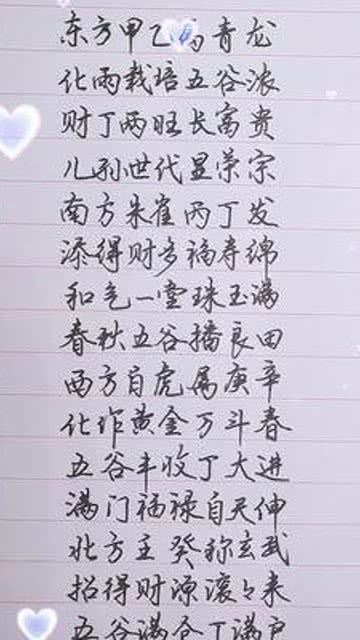 东方甲乙为青龙
化雨栽培五谷浓
财丁两旺长富贵
儿孙世代显荣宗
南方朱雀丙丁发
添得财多福寿绵
和气一堂珠玉满
春秋五谷播良田
西方白虎属庚辛
化作黄金万斗春
五谷丰收丁大进
满门福禄自天伸
北方壬癸称玄武
招得财源滚々来
五谷满仓丁满